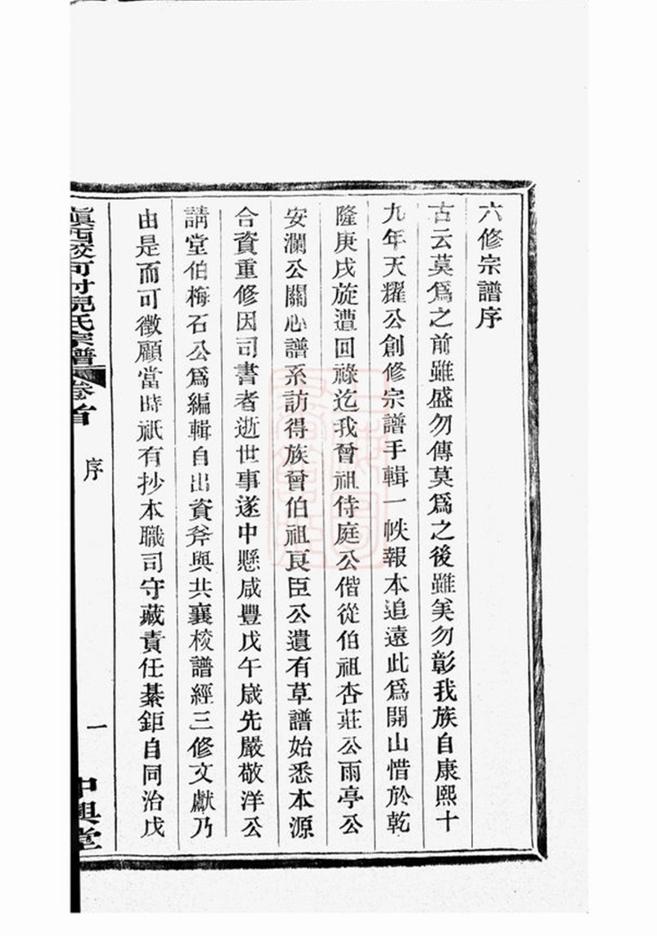 六修宗譜序
古云莫爲之前雖盛勿傳莫爲之後雖美勿彰我族自康熙十
九年天耀公創修宗譜手輯一帙報本追遠此爲開山惜於乾
隆庚戌旋遭回祿迄我曾祖侍庭公偕從伯祖杏莊公雨亭公
安瀾公關心譜系訪得族曾伯祖良臣公遺有草譜始悉本源
合資重修因司書者逝世事遂中懸咸豐戊午歲先嚴敬洋公
請堂伯梅石公爲編輯自出資斧與共襄校譜經三修文獻乃
由是而可徵顧當時祇有抄本職司守藏責任綦鉅自同治戊
西 河 氏宗譜 卷首
序
一
中興堂